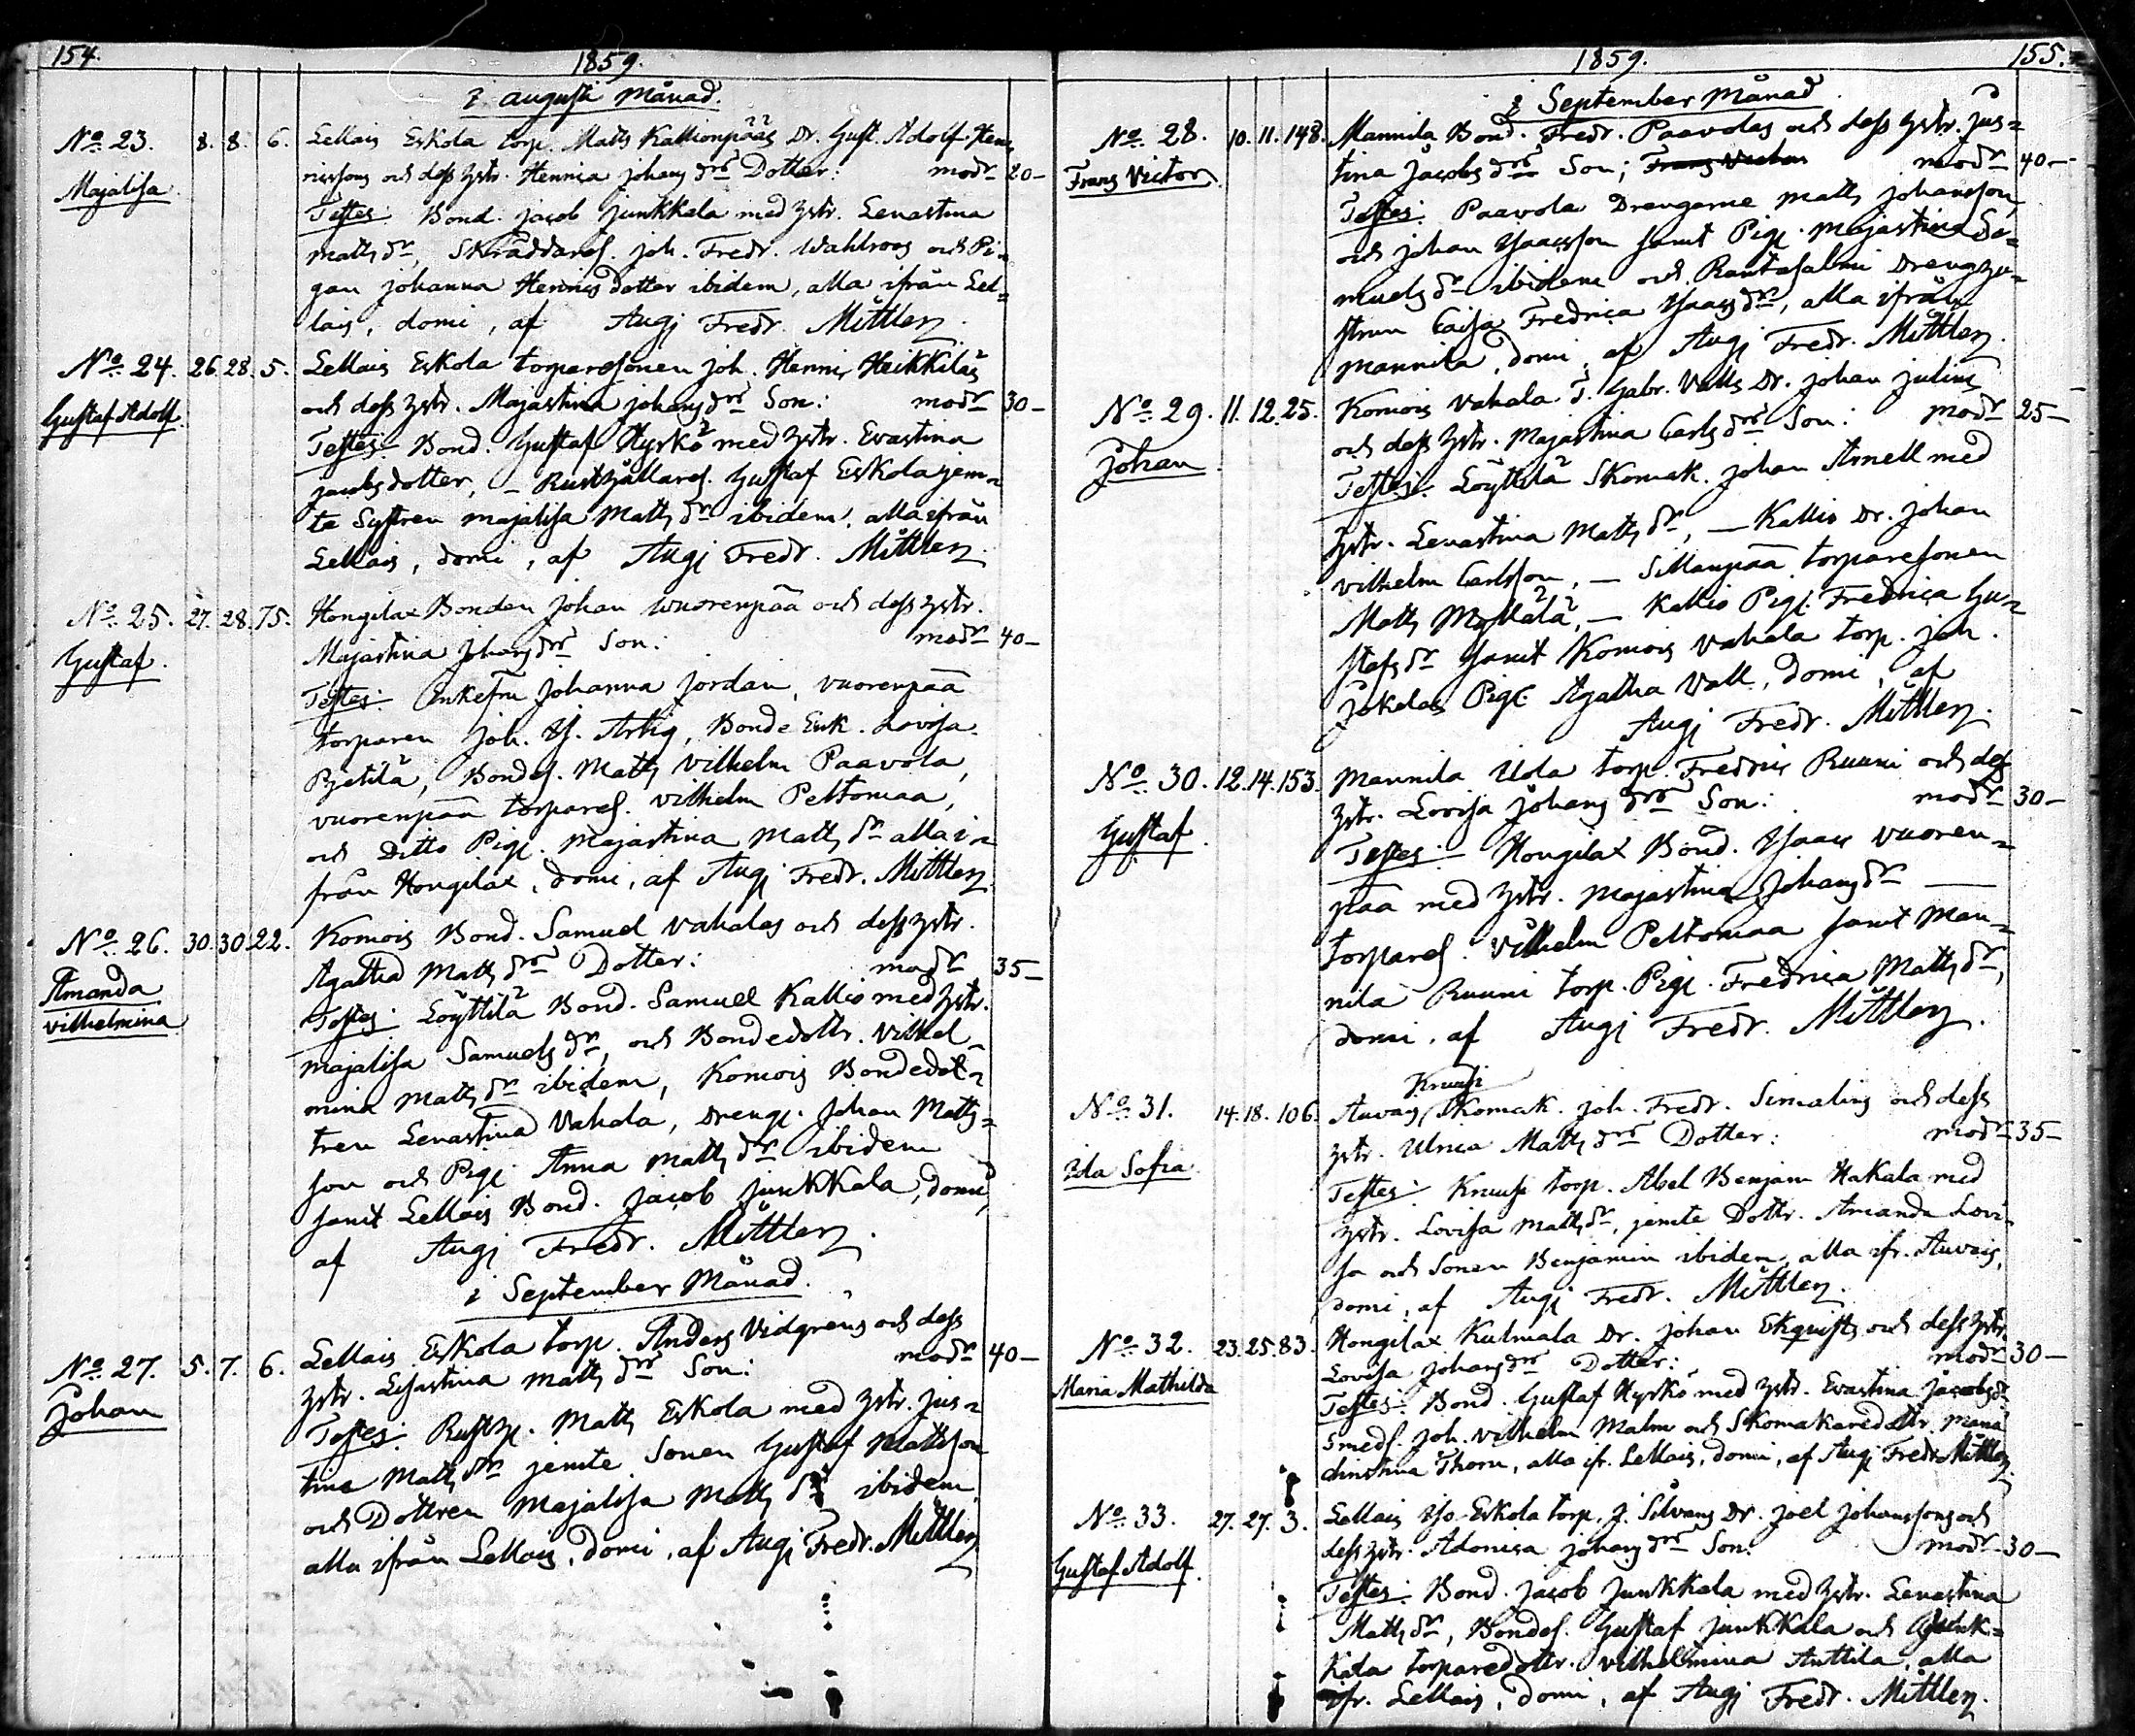 154.
1859.
i Augusti Månad.
No. 23. 8. 8. 6. Lellais Eskola torp. Matts Kallionpääs Dr. Gust. Adolf Hen-
Majalisa ricssons och dess hstr. Henrica Johans drs Dotter: modr 20-
Testes: Bond. Jacob Junkkala med hstr. Lenastina
Matts dr, Skräddares. Joh. Fredr. Wahlroos och Pi-
gan Johanna Henrics dotter ibidem, alla ifrån Lel=
lais, domi, af Augj Fredr. Mittler.
No. 24. 26. 28. 5. Lellais Eskola torparesonen Joh. Henric Heikkiläs
Gustaf Adolf. och dess hstr. Majastina Johans drs Son: modr 30-
Testes: Bond. Gustaf Hyrkö med hstr. Evastina
Jacobsdotter, – Rusthållares. Gustaf Eskola jem-
te Systren Majalisa Matts dr ibidem, alla ifrån
Lellais, domi, af Augj Fredr. Mittler.
No. 25. 27. 28. 75. Hongilax Bonden Johan Wuorenpää och dess hstr.
Gustaf. Majastina Johans drs Son: modr 40-
Testes: Enkefru Johanna Jordan, Vuorenpää
torparen Joh. Is. Artig, Bonde Enk. Lovisa
Pietilä, Bondes. Matts Vilhelm Paavola,
Vuorenpää torpares. Vilhelm Peltomaa,
och Ditto Pig. Majastina Matts dr alla i-
från Hongilax, domi, af Augj Fredr. Mittler.
No. 26. 30. 30. 22. Komois Bond. Samuel Vahalas och dess hstr.
Amanda Agatha Matts drs Dotter: modr 35-
Vilhelmina Testes: Löyttilä Bond. Samuel Kallio med hstr.
Majalisa Samuels dr, och Bondedottr. Vilhel-
mina Matts dr ibidem, Komois Bondedot-
tren Lenastina Vahala, Dreng. Johan Matts=
son och Pig. Anna Matts dr ibidem
samt Lellais Bond. Jacob Junkkala, domi,
af Augj Fredr. Mittler.
i September Månad.
No. 27. 5. 7. 6. Lellais Eskola torp. Anders Vidgrens och dess
Johan hstr. Lisastina Matts drs Son: modr 40-
Testes: Rusth. Matts Eskola med hstr. Jus-
tina Matts dr jemte Sonen Gustaf Mattsson
och Dottren Majalisa Matts dr ibidem
alla ifrån Lellais, domi, af Augj Fredr. Mittler
1859.
155.
i September Månad
No. 28. 10. 11. 148. Mannila Bond. Fredr. Paavolas och dess hstr. Jus=
Frans Victor tina Jacobs drs Son; Frans Victor modr 40-
Testes: Paavola Drengarne Matts Johansson,
och Johan Isaacsson samt Pig. Majastina Sa=
muels dr ibidem och Rantasalmi Drenghu-
strun Caisa Fredrica Isaacs dr, alla ifrån
Mannila, domi, af Augj Fredr. Mittler.
No. 29. 11. 12. 25. Komois Vahala T. Gabr. Valls Dr. Johan Julins
Johan och dess hstr. Majastina Carls drs Son: modr 25-
Testes: Löyttilä Skomak. Johan Arnell med
hstr. Lenastina Matts dr, – Kallio Dr. Johan
Vilhelm Carlsson, – Sillanpää torparesonen
Matts Myllälä, – Kallio Pig. Fredrica Gu-
stafs dr samt Komois Vahala torp. Joh.
Jokelas Pig. Agatha Vall, domi, af
Augj Fredr. Mittler.
No. 30. 12. 14. 153. Mannila Uola torp. Fredric Ruuni och dess
Gustaf. hstr. Lovisa Johans drs Son: modr 30-
Testes: Hongilax Bond. Isaac Vuoren-
pää med hstr. Majastina Johans dr –
torpares. Vilhelm Peltomaa samt Man-
nila Ruuni torp. Pig. Fredrica Matts dr,
domi, af Augj Fredr. Mittler.
Kruusi
No. 31. 14. 18. 106. Auvais Skomak. Joh. Fredr. Simelius och dess
Ida Sofia hstr. Ulrica Matts drs Dotter: modr 35-
Testes: Kruusi torp. Abel Benjam Hakala med
hstr. Lovisa Matts dr, jemte Dottr. Amanda Lovi-
sa och Sonen Benjamin ibidem, alla ifr. Auvais,
domi, af Augj Fredr. Mittler.
No. 32. 23. 25. 83. Hongilax Kulmala Dr. Johan Ekqvists och dess hstr.
Maria Mathilda Lovisa Johans drs Dotter: modr 30-
Testes: Bond. Gustaf Hyrkö med hstr. Evastina Jacobs dr
Smeds. Joh. Vilhelm Malm och Skomakaredottr. Maria
Christina Thorn, alla ifr. Lellais, domi, af Augj Fredr. Mittler.
No. 33. 27. 27. 3. Lellais Iso-Eskola torp. J. Silvans Dr. Joel Johanssons och
Gustaf Adolf. dess hstr. Adonica Johans drs Son: modr 30-
Testes: Bond. Jacob Junkkala med hstr. Lenastina
Matts dr, Bondes. Gustaf Junkkala och Junk=
kala torparedottr. Vilhelmina Anttila, alla
ifr. Lellais, domi, af Augj Fredr. Mittler.